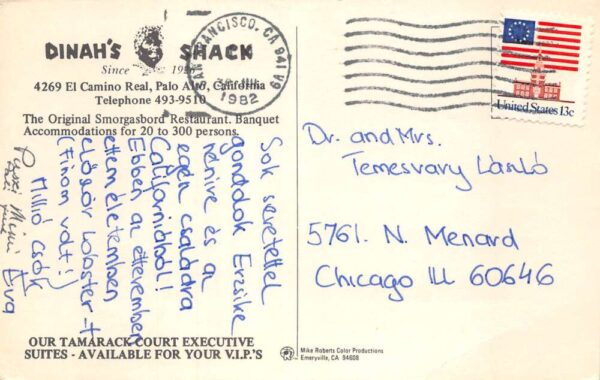 DINAH'S SHACK
Since 1926
4269 El Camino Real, Palo Alto, California
Telephone 493-9510
The Original Smorgasbord Restaurant. Banquet
Accommodations for 20 to 300 persons.
Sok szeretettel
gondolok Erzsike
nénire és az
egész családra
Californiából!
Ebben az étteremben
ettem életemben
először lobster-t
(Finom volt!)
Millió csók
Éva
Puszi Mimi
OUR TAMARACK COURT EXECUTIVE
SUITES - AVAILABLE FOR YOUR V.I.P.'S
SAN FRANCISCO, CA 941
1982
United States 13c
Dr. and Mrs.
Temesvary László
5761. N. Menard
Chicago Ill 60646
Mike Roberts Color Productions
Emeryville, CA 94608